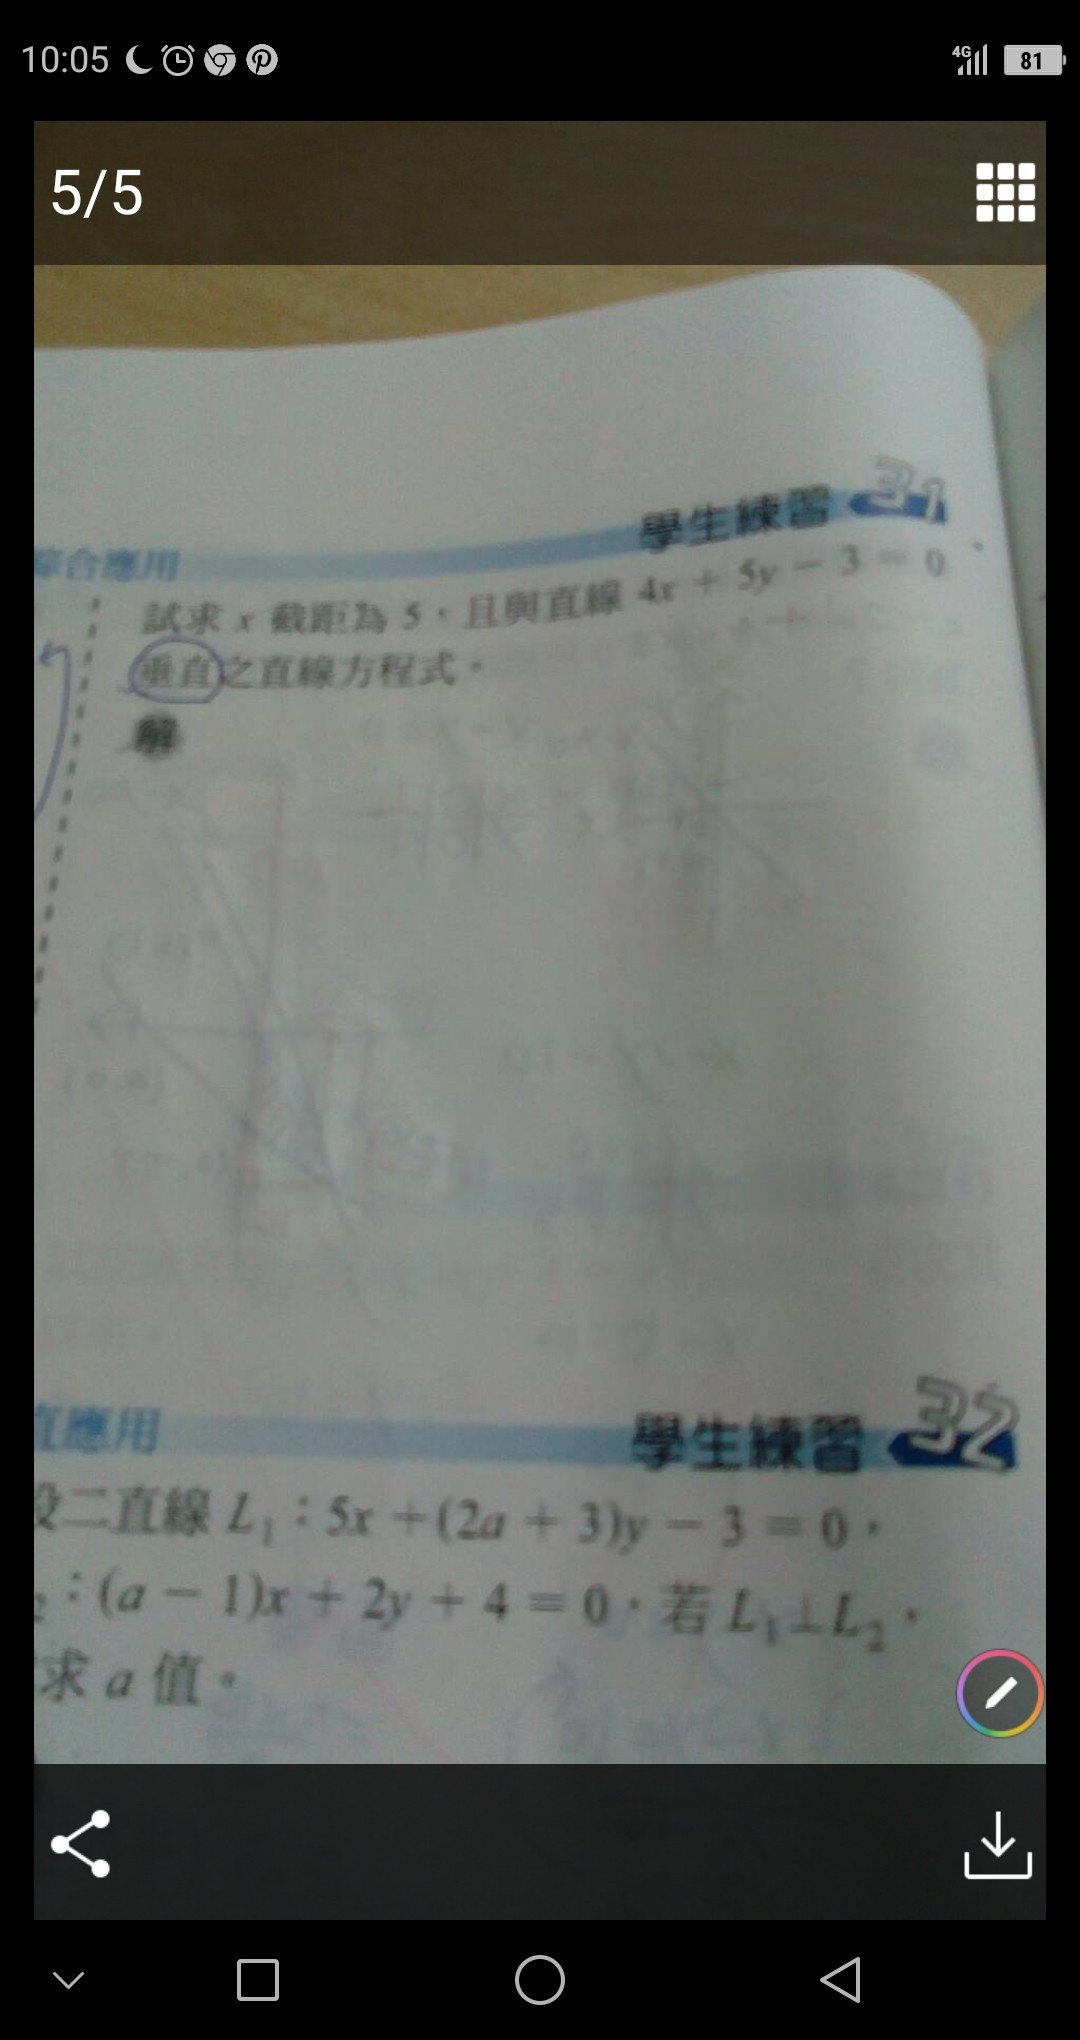 10:05
4G
81
5/5
學生練習 31
綜合應用
試求 x 截距為 5，且與直線 4x + 5y − 3 = 0
垂直之直線方程式。
解
學生練習 32
直應用
設二直線 L₁：5x +(2a + 3)y − 3 = 0，
₂：(a − 1)x + 2y + 4 = 0，若 L₁⊥L₂，
求 a 值。